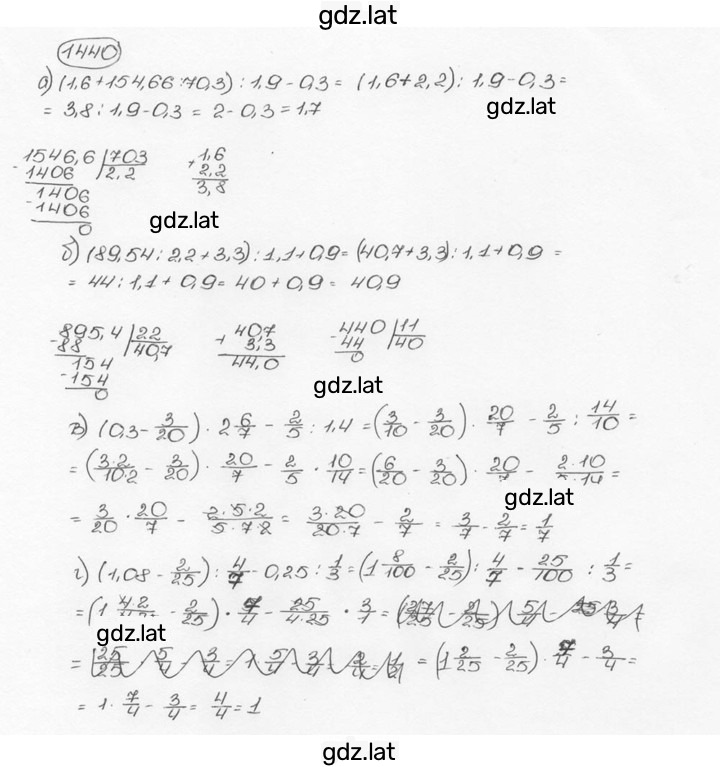 gdz.lat
1440
а) (1,6+154,66:70,3):1,9-0,3= (1,6+2,2):1,9-0,3=
gdz.lat
= 3,8:1,9-0,3 = 2-0,3=1,7
1546,6 | 70,3
- 1406 2,2
1406
- 1406
0
+ 1,6
2,2
3,8
gdz.lat
б) (89,54:2,2+3,3):1,1+0,9=(40,7+3,3):1,1+0,9 =
= 44:1,1+0,9=40+0,9= 40,9
895,4 | 22
- 88 40,7
154
- 154
0
+ 40,7
3,3
44,0
- 440 | 11
44 40
0
gdz.lat
в) (0,3-3/20)·2 6/7 - 2/5 : 1,4 = (3/10 - 3/20)· 20/7 - 2/5 : 14/10 =
= (3·2/10·2 - 3/20)· 20/7 - 2/5 · 10/14 = (6/20 - 3/20)· 20/7 - 2·10/5·14 =
gdz.lat
= 3/20 · 20/7 - 2·5·2/5·7·2 = 3·20/20·7 - 2/7 = 3/7 - 2/7 = 1/7
г) (1,08 - 2/25) : 4/7 - 0,25 : 1/3 = (1 8/100 - 2/25) : 4/7 - 25/100 : 1/3 =
= (1 4·2/ - 2/25)· 7/4 - 25/4·25 · 3/1 =
gdz.lat
= (1 2/25 - 2/25)· 7/4 - 3/4 =
= 1· 7/4 - 3/4 = 4/4 = 1
gdz.lat